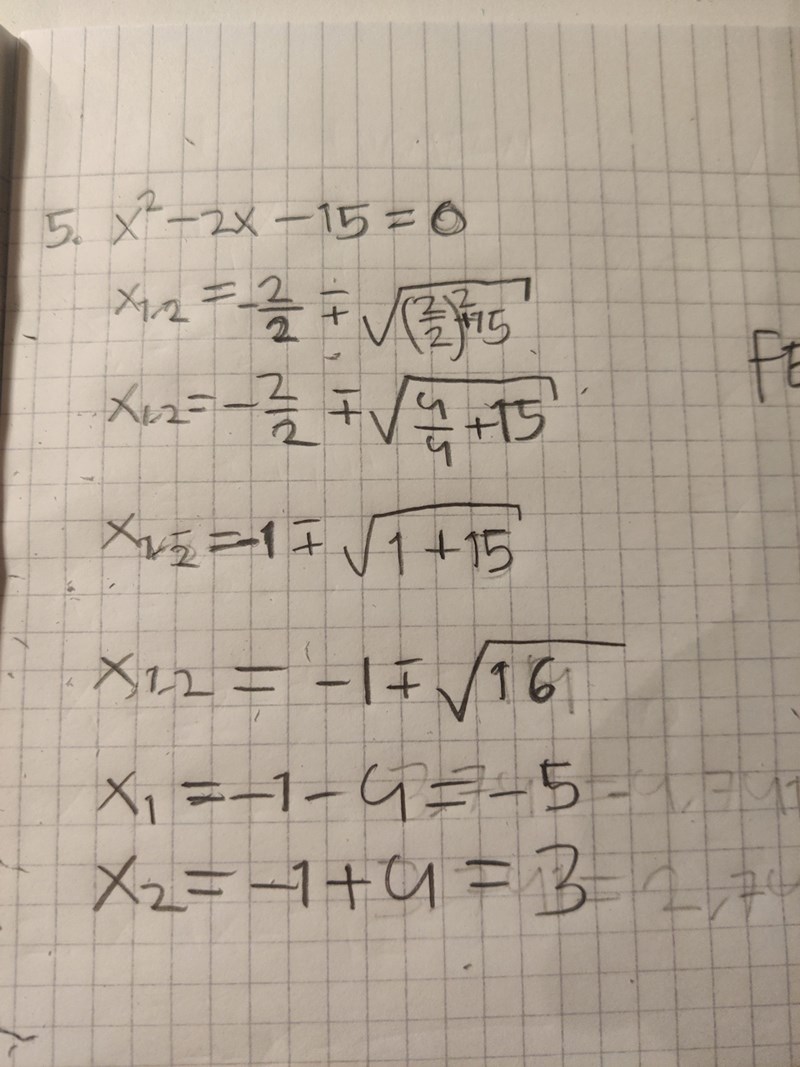 5. x² - 2x - 15 = 0
x₁,₂ = -2/2 ∓ √((2/2)² + 15)
FE
x₁,₂ = -2/2 ∓ √(4/4 + 15)
x₁,₂ = -1 ∓ √(1 + 15)
x₁,₂ = -1 ∓ √16
x₁ = -1 - 4 = -5
x₂ = -1 + 4 = 3